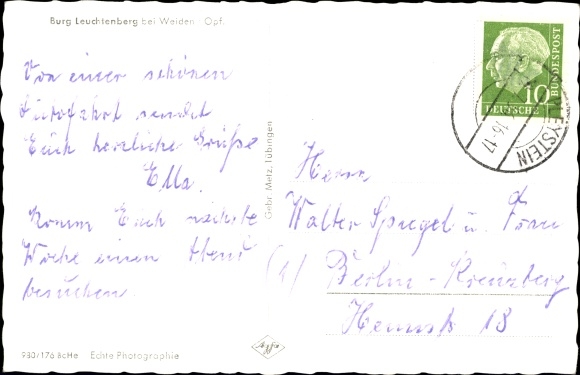 Burg Leuchtenberg bei Weiden Opf.
Von einer schönen
Autofahrt sendet
Euch herzliche Grüße
Ella.
Komm Euch nächste
Woche einen Abend
besuchen.
930/176 BcHe Echte Photographie
Gebr. Metz, Tübingen
Agfa
10
DEUTSCHE
BUNDESPOST
EYSTEIN
16-17
Herrn
Walter Spiegel u. Frau
(1) Berlin-Kreuzberg
18